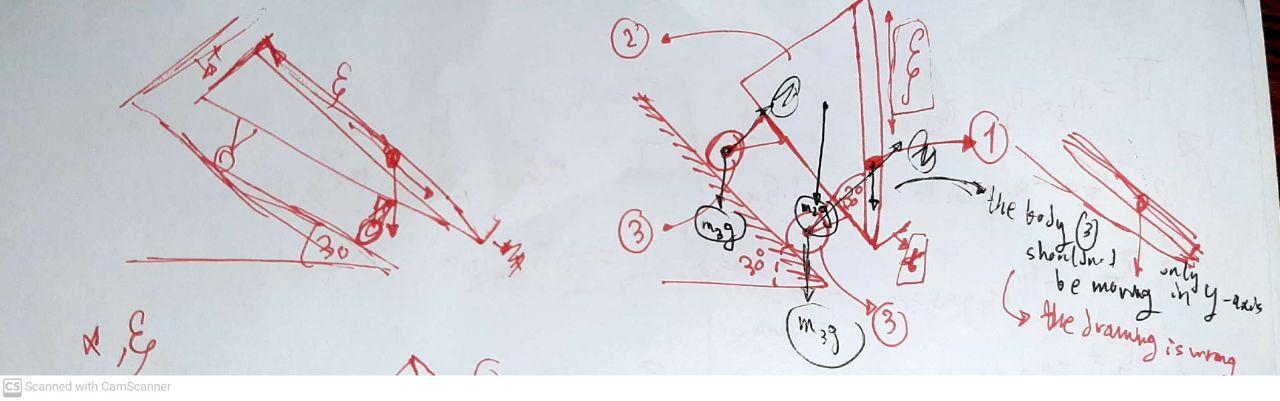 x
ξ
30
x, ξ
2
2
ξ
1
m₃g
m₂g
30
3
30°
x
3
m₃g
the body (3)
shouldn't
be moving in only y-axis
the drawing is wrong
CS Scanned with CamScanner